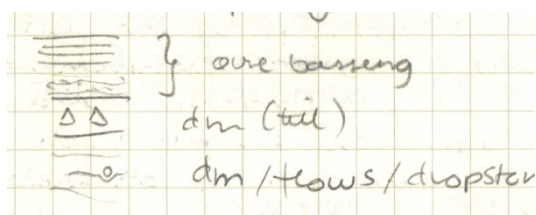 øvre basseng
dm (till)
dm / flows / dropston